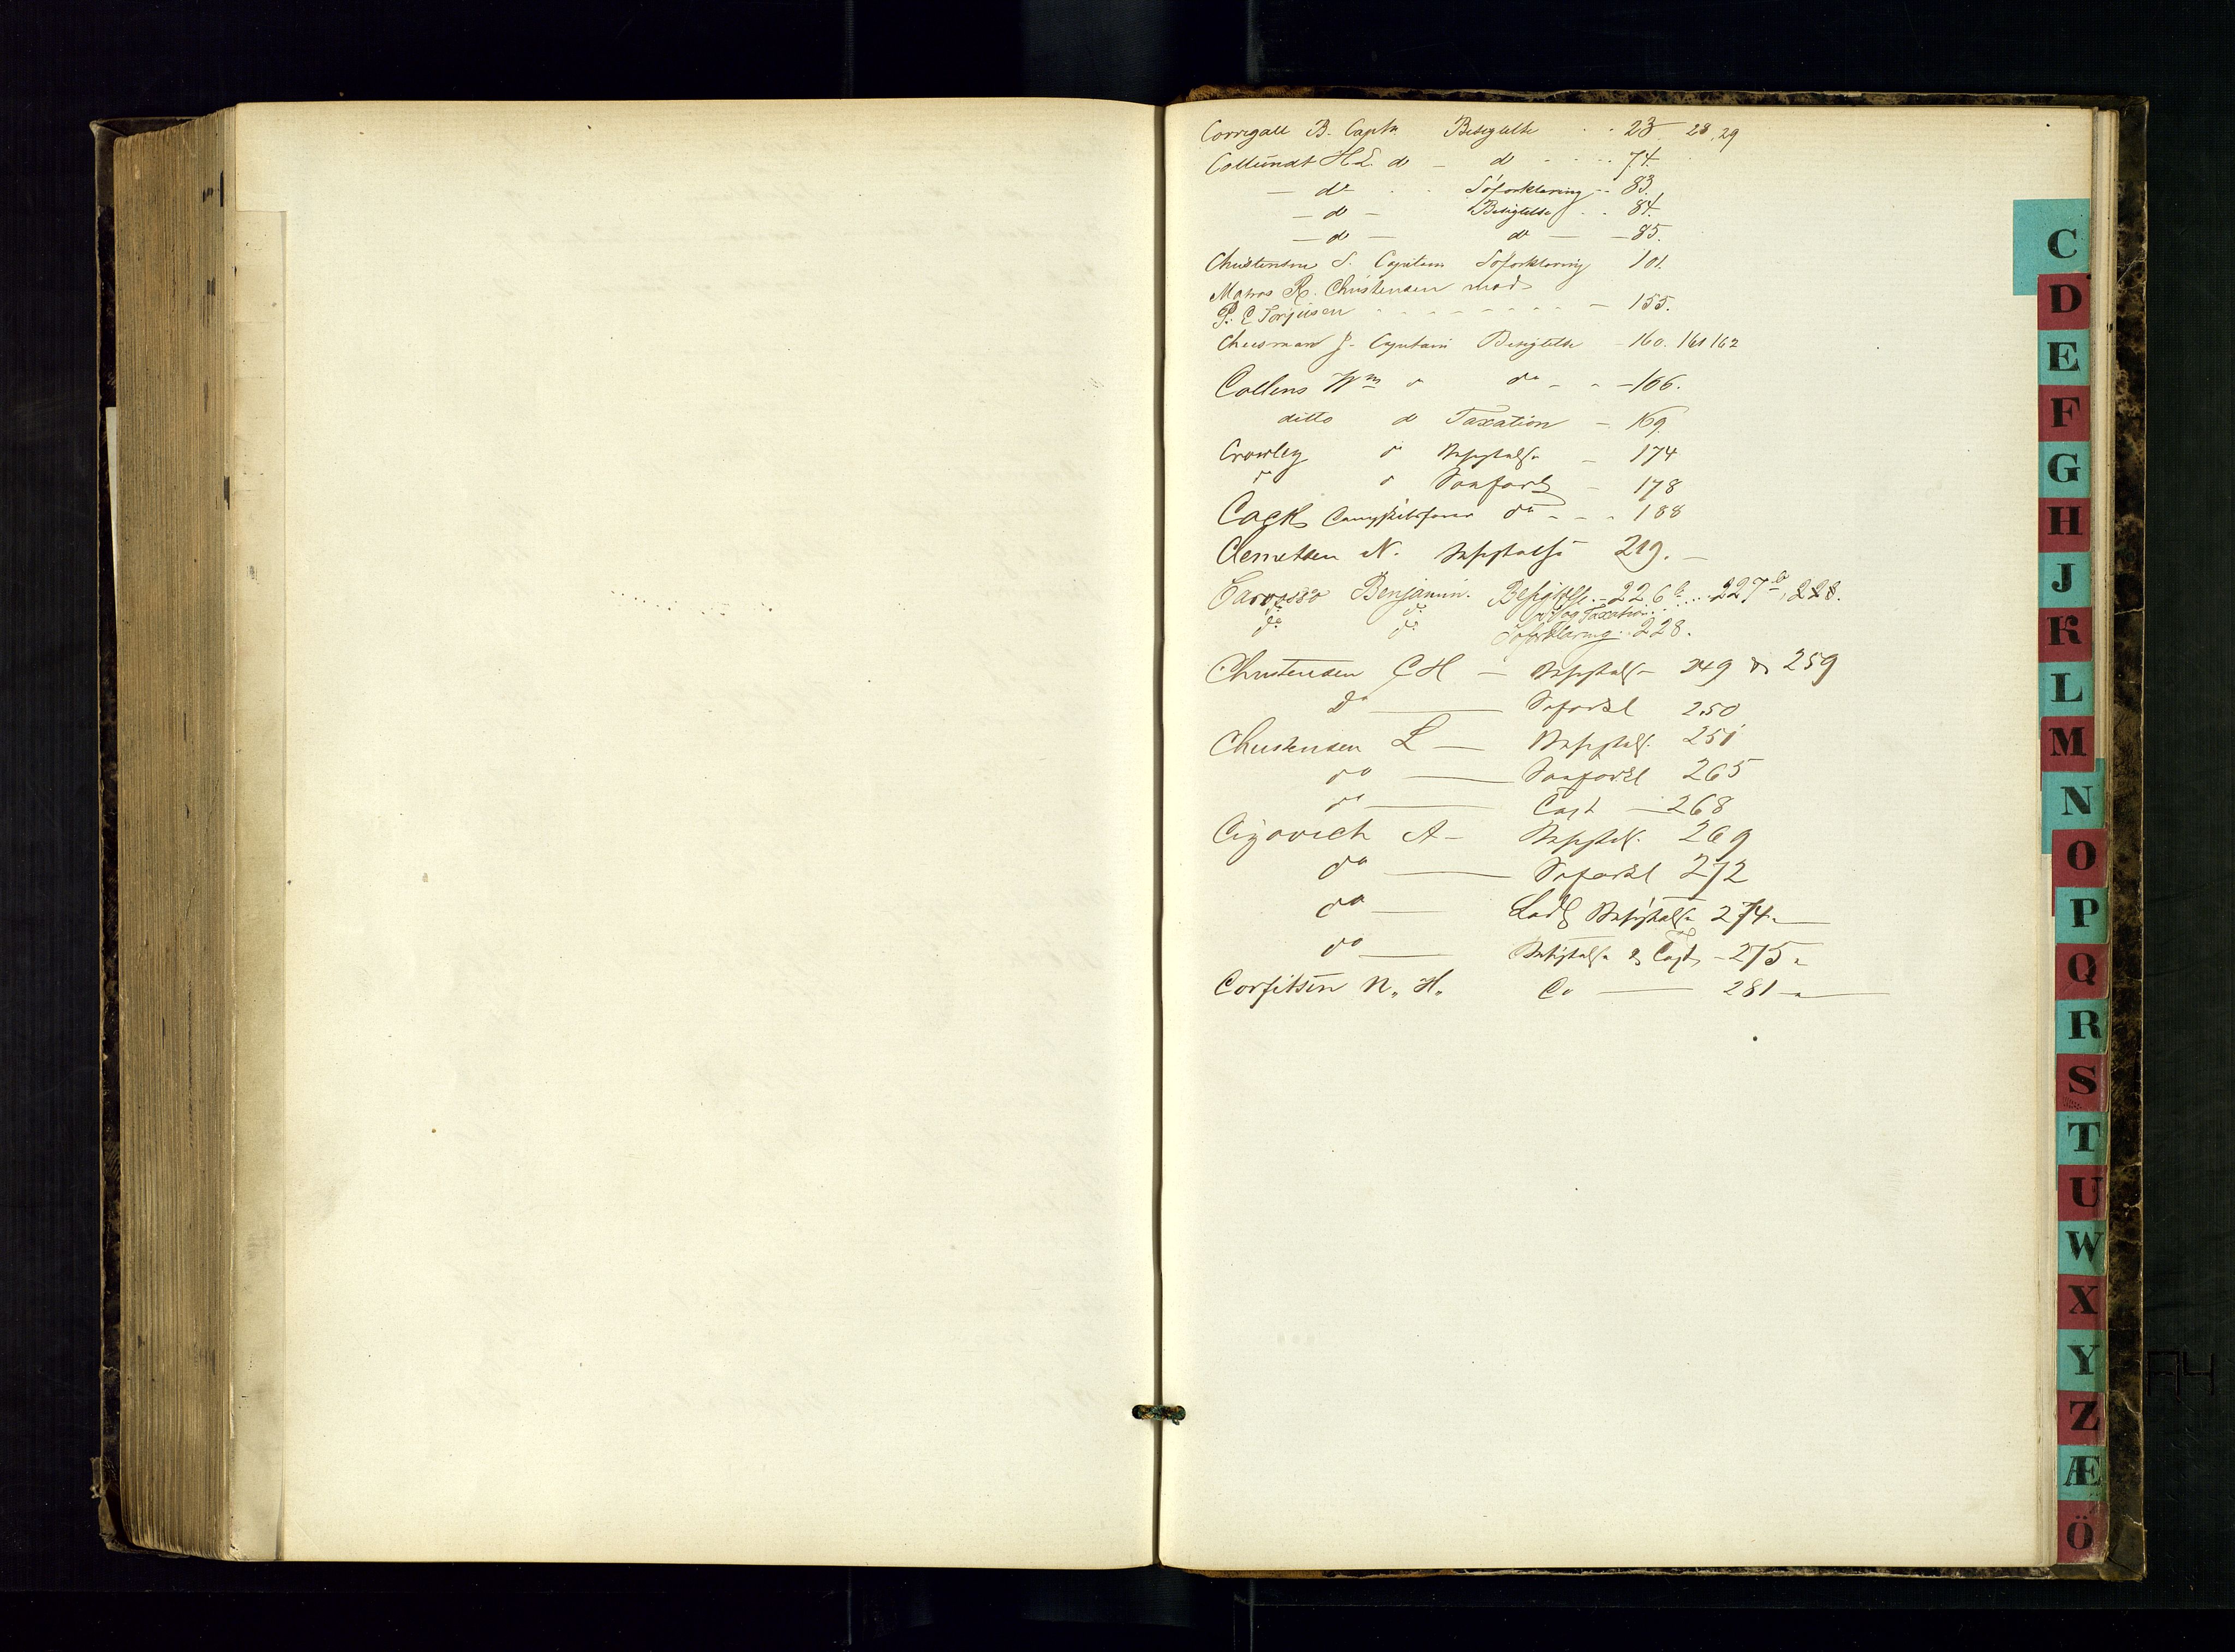 Corrigall B. Captn Besigtelse . . 23 28, 29
Collundt H.L. do - do - . . . 74.
- do - . . Søforklaring - - 83.
- do - Besigtelse . . 84.
- do - do - - 85.
Christensen S. Capitain Søforklaring 101.
Matros R. Christensen mod
P. C Torjusen - - - - - - - - - 155.
Cheesman J. Capitain Besigtelse - 160. 161 162
Collens Wm do do - - - 166.
ditto do Taxation - 169.
Crowley do Besigtelse - 174
do do Søeforkl - 178
Cack do - - - 188
Clemetsen N. Besigtelse 219. -
Carvosso Benjamin. Besigtelse . . 226 b . . . . . 227 b, 228.
do do og Taxation . . . . .
do do Søforklaring . . 228.
Christensen C H - Besigtelse 249 og 259
Do Søforkl 250
Christensen L - Besigtels. 251
do Søeforkl 265
do Taxt - 268
Cizovich A - Besigtels. 269
do Søforkl 272
do - Ladgs Besigtelse 274. -
do - Besigtelse og Taxt - 275 -
Corfitsen N. H. Do 281 -
C
D
E
F
G
H
J
K
L
M
N
O
P
Q
R
S
T
U
W
X
Y
Z
Æ
Ö